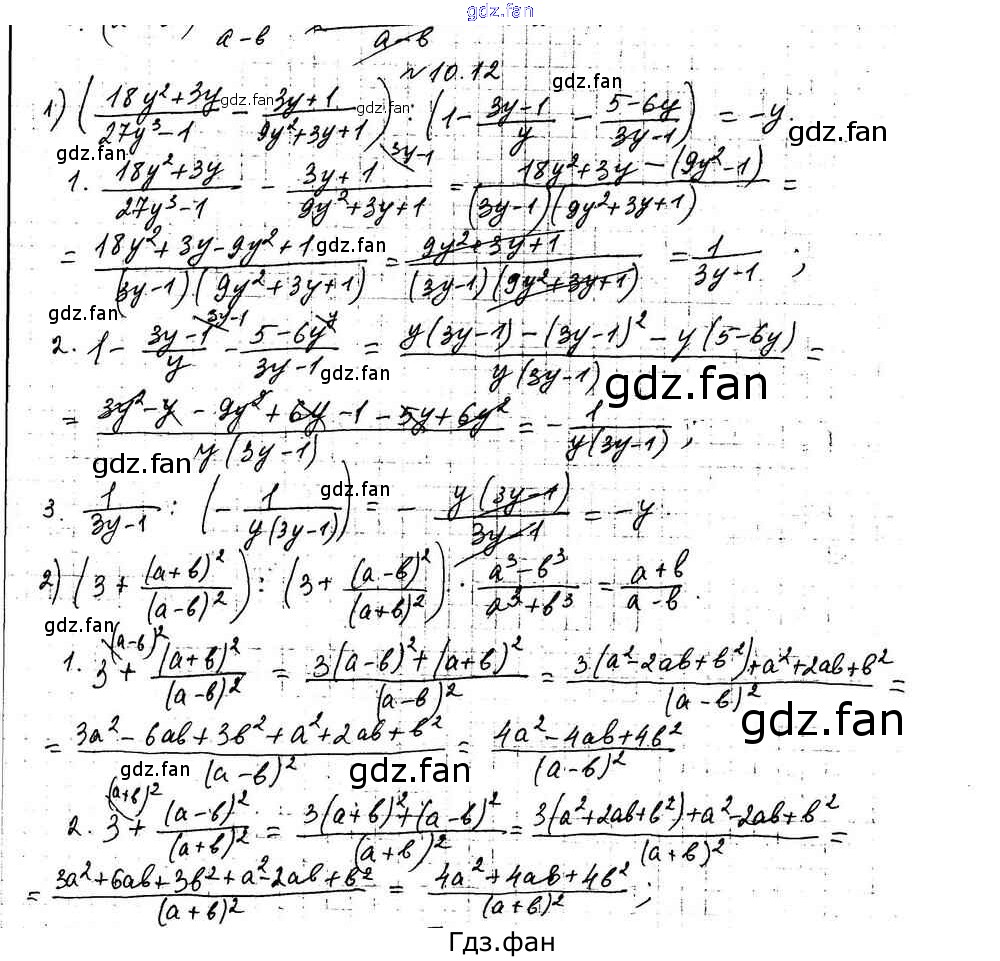 gdz.fan
a-b a-b
№10.12
1) ((18y²+3y)/(27y³-1) - (3y+1)/(9y²+3y+1)) : (1 - (3y-1)/y - (5-6y)/(3y-1)) = -y.
gdz.fan gdz.fan gdz.fan gdz.fan
1. (18y²+3y)/(27y³-1) - (3y+1)/(9y²+3y+1) ^(3y-1) = (18y²+3y-(9y²-1))/((3y-1)(9y²+3y+1)) =
gdz.fan
= (18y²+3y-9y²+1)/((3y-1)(9y²+3y+1)) = (9y²+3y+1)/((3y-1)(9y²+3y+1)) = 1/(3y-1);
gdz.fan gdz.fan
2. 1 - (3y-1)/y ^(3y-1) - (5-6y)/(3y-1) ^y = (y(3y-1)-(3y-1)²-y(5-6y))/(y(3y-1)) =
gdz.fan gdz.fan
= (3y²-y-9y²+6y-1-5y+6y²)/(y(3y-1)) = -1/(y(3y-1));
gdz.fan gdz.fan
3. 1/(3y-1) : (-1/(y(3y-1))) = -(y(3y-1))/(3y-1) = -y.
2) (3+(a+b)²/(a-b)²) : (3+(a-b)²/(a+b)²) · (a³-b³)/(a³+b³) = (a+b)/(a-b).
gdz.fan gdz.fan
1. 3 ^(a-b)² + (a+b)²/(a-b)² = (3(a-b)²+(a+b)²)/(a-b)² = (3(a²-2ab+b²)+a²+2ab+b²)/(a-b)² =
gdz.fan
= (3a²-6ab+3b²+a²+2ab+b²)/(a-b)² = (4a²-4ab+4b²)/(a-b)²
gdz.fan gdz.fan
2. 3 ^(a+b)² + (a-b)²/(a+b)² = (3(a+b)²+(a-b)²)/(a+b)² = (3(a²+2ab+b²)+a²-2ab+b²)/(a+b)² =
= (3a²+6ab+3b²+a²-2ab+b²)/(a+b)² = (4a²+4ab+4b²)/(a+b)²;
Гдз.фан